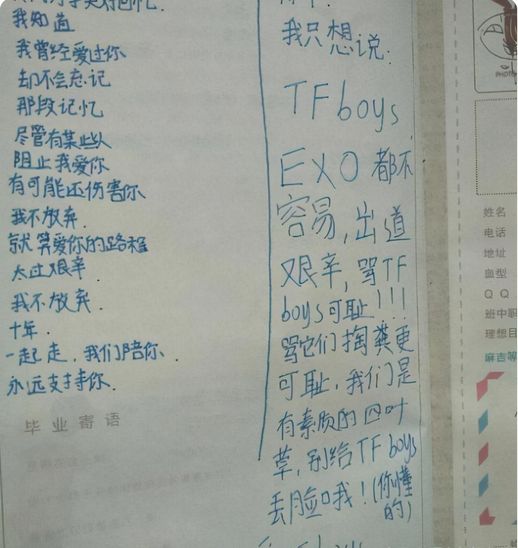 我知道
我曾经爱过你
却不会忘记
那段记忆
尽管有某些人
阻止我爱你
有可能还伤害你
我不放弃.
就算爱你的路程
太过艰辛.
我不放弃.
十年.
一起走,我们陪你.
永远支持你.
毕业寄语
我只想说:
TFboys,
EXO都不
容易,出道
艰辛,骂TF
boys可耻!!!
骂它们掏粪更
可耻,我们是
有素质的四叶
草,别给TFboys
丢脸哦!(你懂
的)
姓名
电话
地址
血型
QQ
班中职
理想目
麻吉等